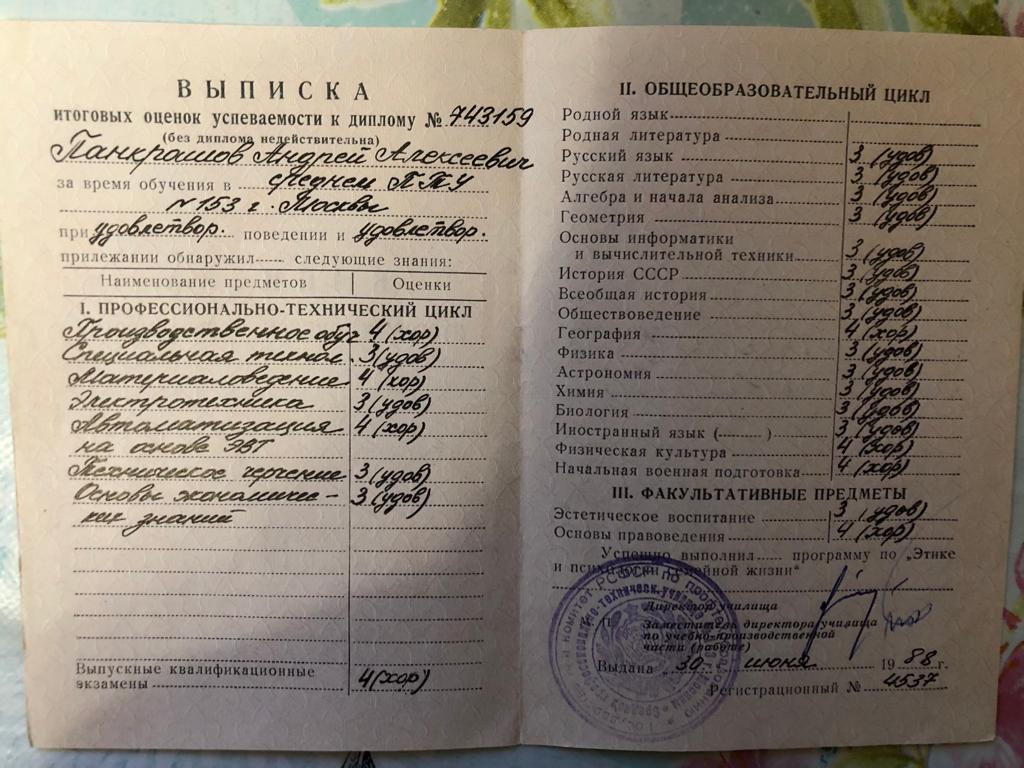 ВЫПИСКА
итоговых оценок успеваемости к диплому № 743159
(без диплома недействительна)
Панкрашов Андрей Алексеевич
за время обучения в среднем ПТУ
N 153 г. Москвы
при удовлетвор. поведении и удовлетвор.
прилежании обнаружил следующие знания:
Наименование предметов Оценки
I. ПРОФЕССИОНАЛЬНО-ТЕХНИЧЕСКИЙ ЦИКЛ
Производственное обуч 4 (хор)
Специальная технол. 3 (удов)
Материаловедение 4 (хор)
Электротехника 3 (удов)
Автоматизация 4 (хор)
на основе ЭВТ
Техническое черчение 3 (удов)
Основы экономичес- 3 (удов)
ких знаний
Выпускные квалификационные
экзамены 4 (хор)
II. ОБЩЕОБРАЗОВАТЕЛЬНЫЙ ЦИКЛ
Родной язык
Родная литература
Русский язык 3 (удов)
Русская литература 3 (удов)
Алгебра и начала анализа 3 (удов)
Геометрия 3 (удов)
Основы информатики
и вычислительной техники 3 (удов)
История СССР 3 (удов)
Всеобщая история 3 (удов)
Обществоведение 3 (удов)
География 4 (хор)
Физика 3 (удов)
Астрономия 3 (удов)
Химия 3 (удов)
Биология 3 (удов)
Иностранный язык ( ) 3 (удов)
Физическая культура 4 (хор)
Начальная военная подготовка 4 (хор)
III. ФАКУЛЬТАТИВНЫЕ ПРЕДМЕТЫ
Эстетическое воспитание 3 (удов)
Основы правоведения 4 (хор)
Успешно выполнил программу по „Этике
и психологии семейной жизни“
Директор училища
Заместитель директора училища
по учебно-производственной
части (работе)
Выдана „30 июня 1988 г.
Регистрационный № 4537